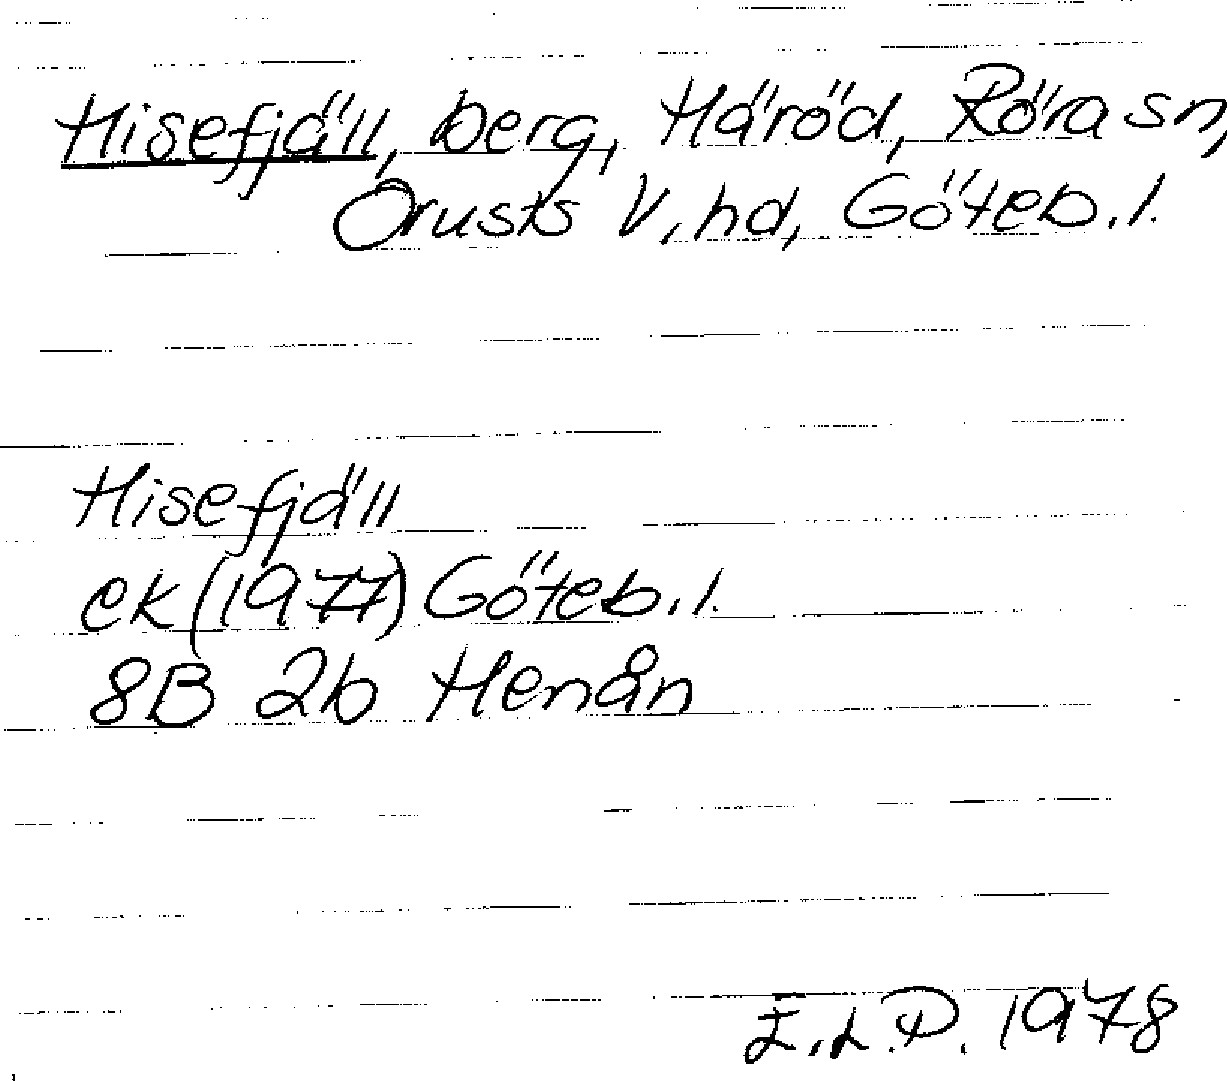 Hisefjäll, berg, Häröd, Röra sn,
Orusts V. hd, Göteb. l.
Hisefjäll
ek (1977) Göteb. l.
8B 2b Henån
E.L.P. 1978